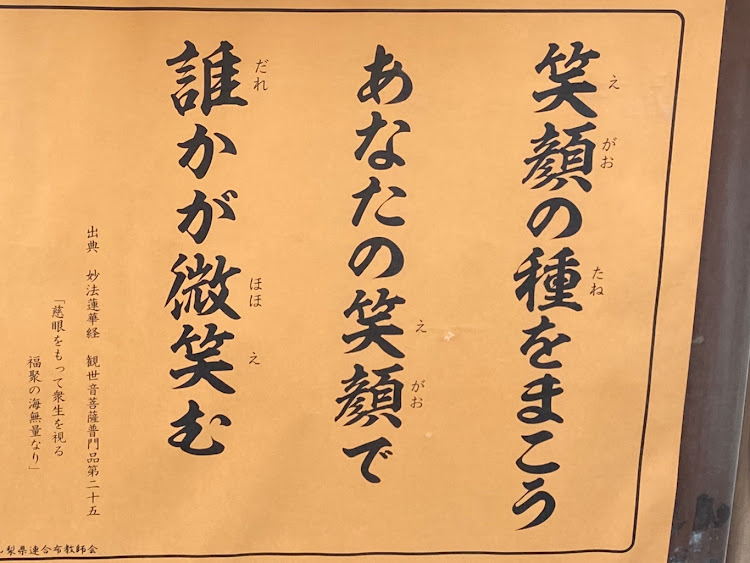 笑顔の種をまこう
あなたの笑顔で
誰かが微笑む
出典 妙法蓮華経 観世音菩薩普門品第二十五
「慈眼をもって衆生を視る
福聚の海無量なり」
梨県連合布教師会